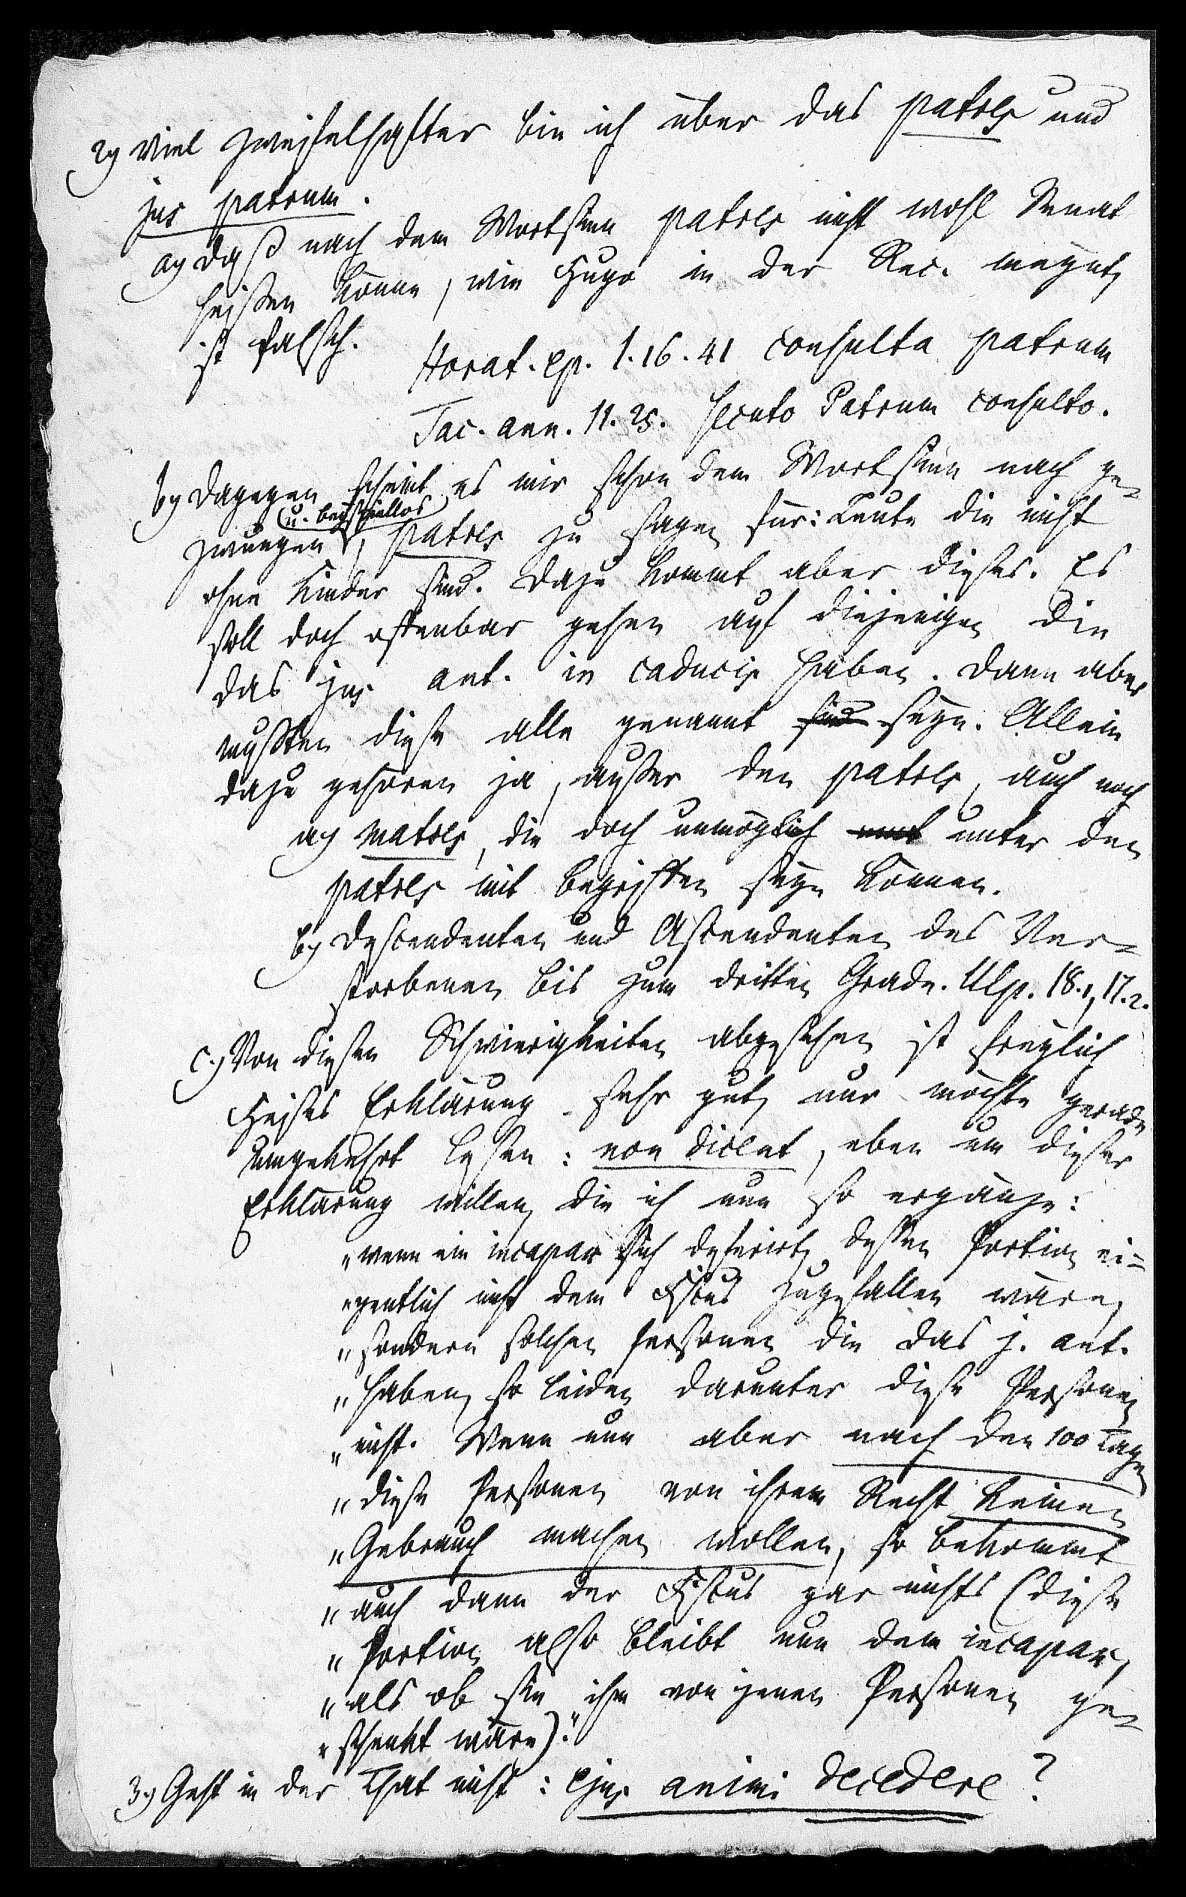 2) Viel zweifelhafter bin ich über das patres und
jus patrum.
a) Daß nach dem Wortsinn patres nicht wohl Senat
heißen könne, wie Hugo in der Rec. meynt,
ist falsch.
Horat. ep. 1.16.41 consulta patrum
Tac. ann. 11.25. secuto Patrum consulto.
b) Dagegen scheint es mir schon dem Wortsinn nach ge-
zwungen u. beyspiellos, patres zu sagen für: Leute die nicht
ohne Kinder sind. Dazu kommt aber dieses. Es
soll doch offenbar gehen auf diejenigen die
das jus ant. in caducis haben. Dann aber
müßten diese alle genannt sind seyn. Allein
dazu gehören ja, außer den patres, auch noch
a) matres, die doch unmöglich mit unter den
patres mit begriffen seyn können.
b) Descendenten und Ascendenten des Ver-
storbenen bis zum dritten Grade. Ulp. 18.1, 17.2.
c.) Von diesen Schwierigkeiten abgesehen ist freylich
Heises Erklärung sehr gut, nur möchte gerade
umgekehrt lesen: non dicent, eben um dieser
Erklärung willen, die ich nun so ergänze:
„wenn ein incapax sich deferirt, dessen Portion ei-
„gentlich nicht dem Fiscus zugefallen wäre,
„sondern solchen Personen die das j. ant.
„haben, so leiden darunter diese Personen
„nicht. Wenn nun aber nach den 100 Tagen
„diese Personen von ihrem Recht keinen
„Gebrauch machen wollen, so bekommt
„auch dann der Fiscus gar nichts (diese
„Portion also bleibt nun dem incapax,
„als ob sie ihm von jenen Personen ge-
„schenkt wäre)."
3.) Geht in der That nicht: ejus animi decedere?